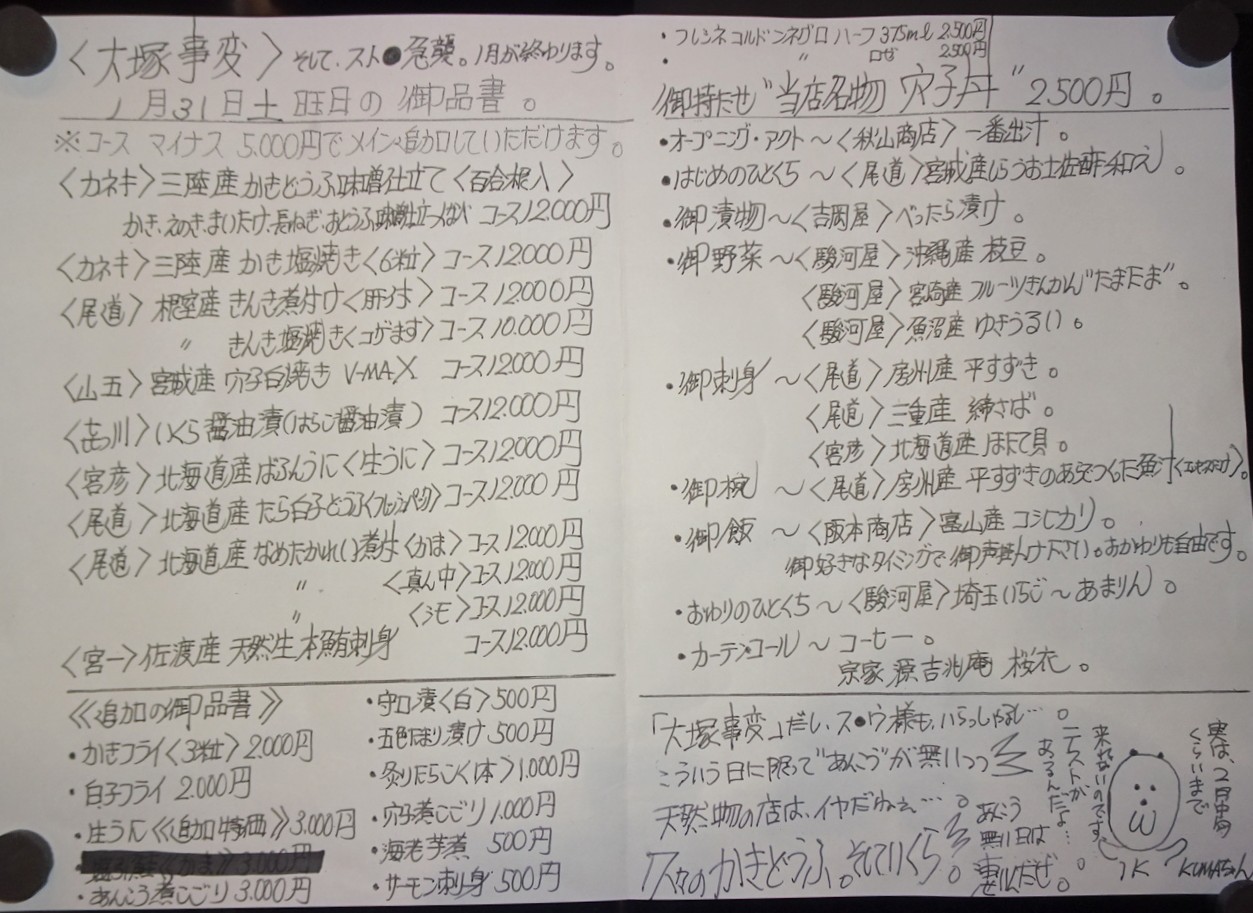 〈大塚事変〉そして、スト●急襲。1月が終わります。
1月31日土旺日の御品書。
※コース マイナス 5.000円でメイン追加していただけます。
〈カネキ〉三陸産かきどうふ味噌仕立て〈百合根入〉
かき・えのき・まいたけ・長ねぎ・おとうふ味噌仕立 コース12.000円
〈カネキ〉三陸産 かき塩焼き〈6粒〉コース12.000円
〈尾道〉根室産 きんき煮付け〈肝付〉コース12.000円
〃 きんき塩焼き〈コがます〉コース10.000円
〈山五〉宮城産 穴子白焼き V-MAX コース12.000円
〈吉川〉いくら醤油漬(はらこ醤油漬) コース12.000円
〈宮彦〉北海道産ばふんうに〈生うに〉コース12.000円
〈尾道〉北海道産 たら白子どうふ コース12.000円
〈尾道〉北海道産 なめたかれい煮付〈かま〉コース12.000円
〃 〈真ん中〉コース12.000円
〃 〈シモ〉コース12.000円
〈宮一〉佐渡産 天然生本鮪刺身 コース12.000円
《追加の御品書》
・かきフライ〈3粒〉2.000円
・白子フライ 2.000円
・生うに《追加特価》3.000円
・あんこう煮こごり 3.000円
・守口漬〈白〉500円
・五色たまり漬け 500円
・炙りたらこ〈1本〉1.000円
・穴子煮こごり 1.000円
・海老芋煮 500円
・サーモン刺身 500円
・フレシネコルドンネグロ ハーフ 375ml 2.500円
・ 〃 ロゼ 2.500円
御持たせ"当店名物 穴子丼" 2.500円。
・オープニング・アクト～〈秋山商店〉一番出汁。
・はじめのひとくち～〈尾道〉宮城産しらうお土佐酢和え。
・御漬物～〈吉岡屋〉べったら漬け。
・御野菜～〈駿河屋〉沖縄産 枝豆。
〈駿河屋〉宮崎産 フルーツきんかん"たまたま"。
〈駿河屋〉魚沼産 ゆきうるい。
・御刺身～〈尾道〉房州産 平すずき。
〈尾道〉三重産 締さば。
〈宮彦〉北海道産 ほたて貝。
・御椀～〈尾道〉房州産 平すずきのあらでつくった魚汁
・御飯～〈阪本商店〉富山産 コシヒカリ。
御好きなタイミングで御声掛け下さい。おかわりも自由です。
・おわりのひとくち～〈駿河屋〉埼玉いちご～あまりん。
・カーテンコール～コーヒー。
宗家 源吉兆庵 桜衣。
「大塚事変」だし、ス●ウ様も、いらっしゃるし…。
こういう日に限って"あんこう"が無いっっ
天然物の店は、イヤだねぇ…。
久々のかきどうふ。そしていくら
あんこう
無い日は
悪いんだぜ。
来れないのです。
ニーズトが
あるんだよ…
実は、2月中旬
くらいまで
ω
1K
KUMAさん